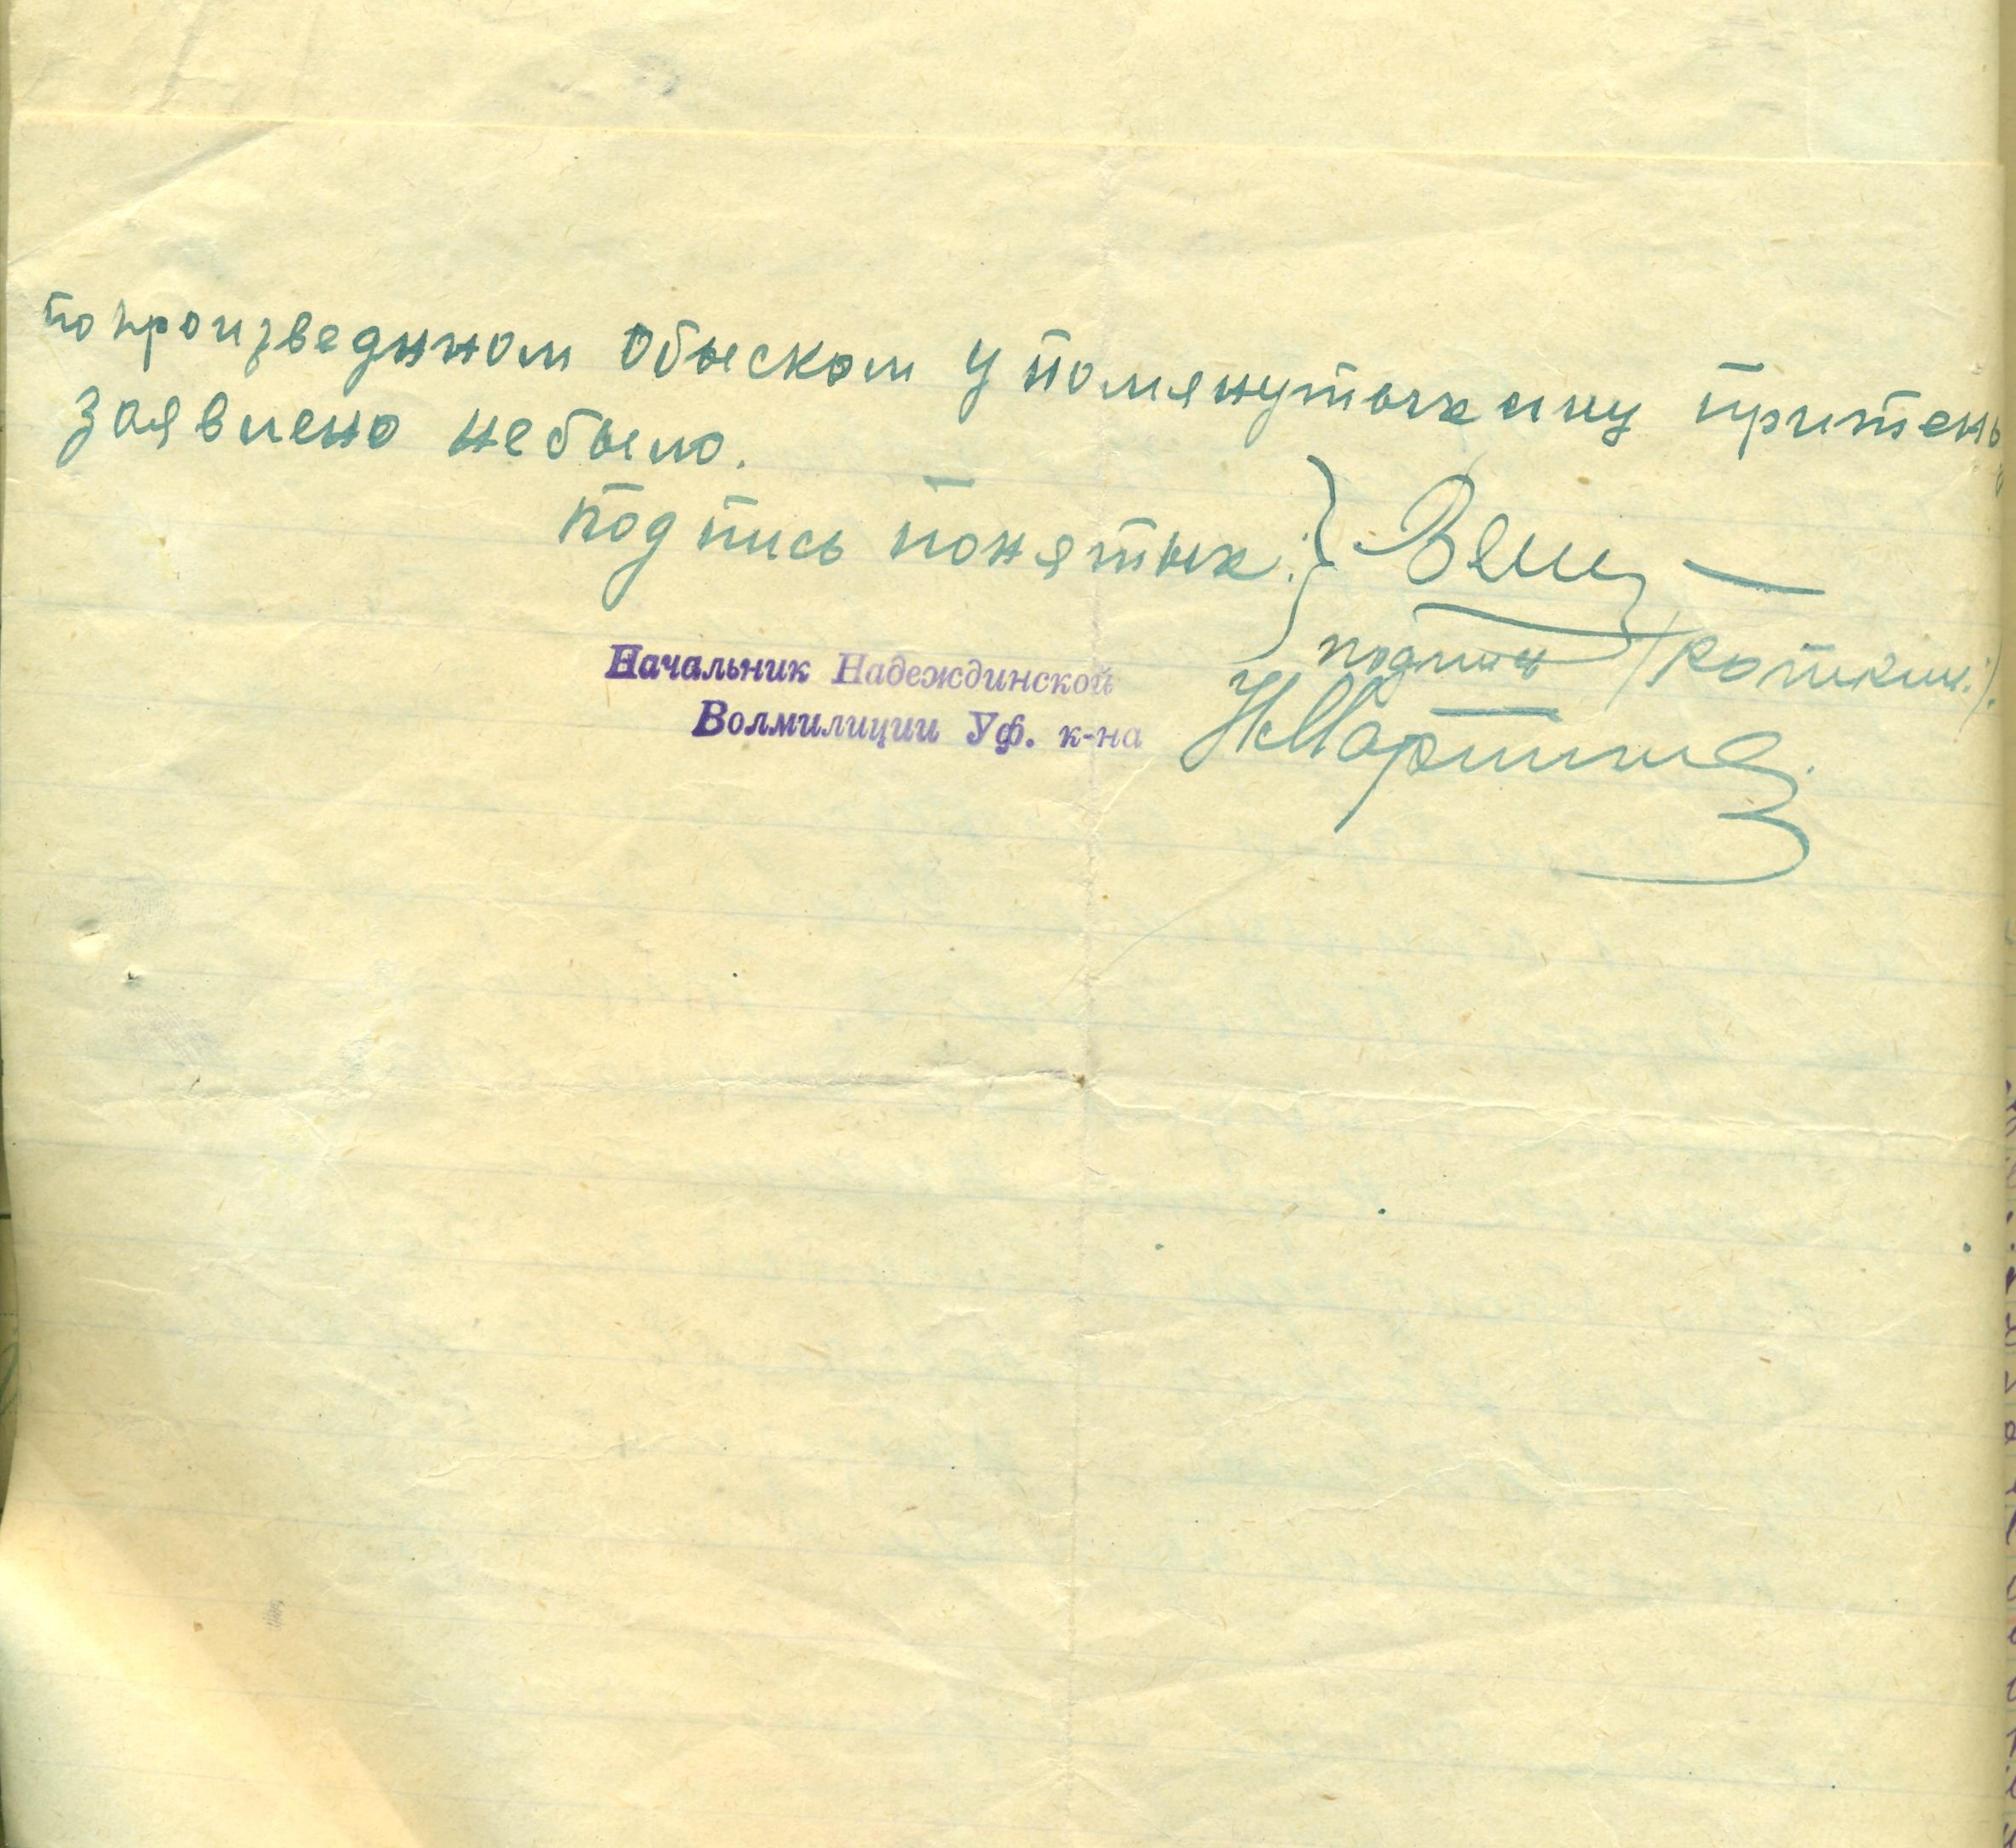 по произведином обыском у помянутых лиц притень
заявлено небыло.
подпись понятых:
подпись /Кошкин:/.
Начальник Надеждинской
Волмилиции Уф. к-на